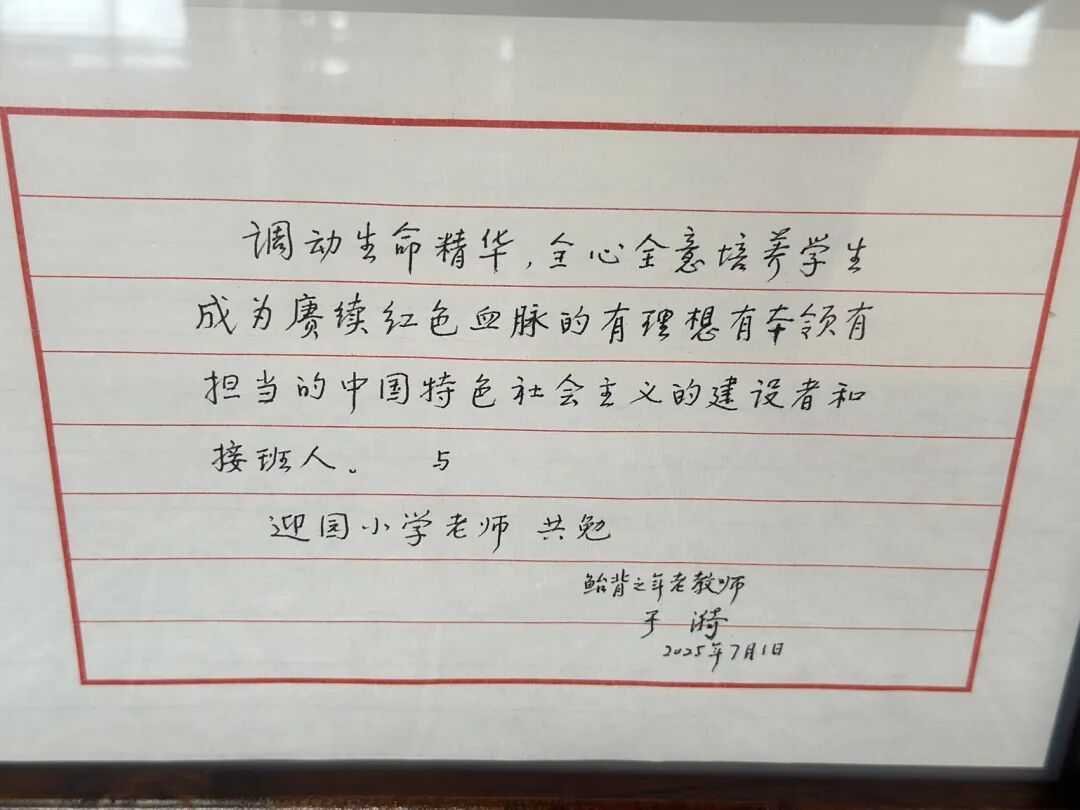 调动生命精华，全心全意培养学生
成为赓续红色血脉的有理想有本领有
担当的中国特色社会主义的建设者和
接班人。 与
迎园小学老师 共勉
鲐背之年老教师
于漪
2025年7月1日